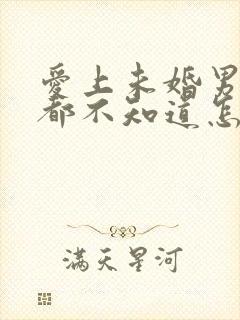 愛上未婚男
都不知道怎
满天星河